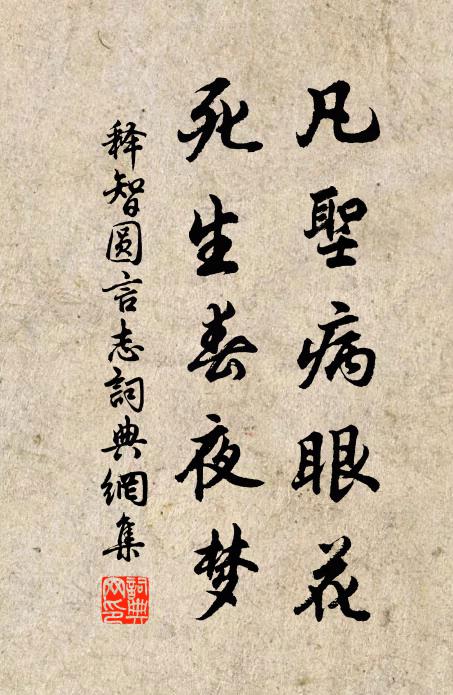 凡聖病眼花
死生春夜梦
释智圆言志詞典網集
詞典網印